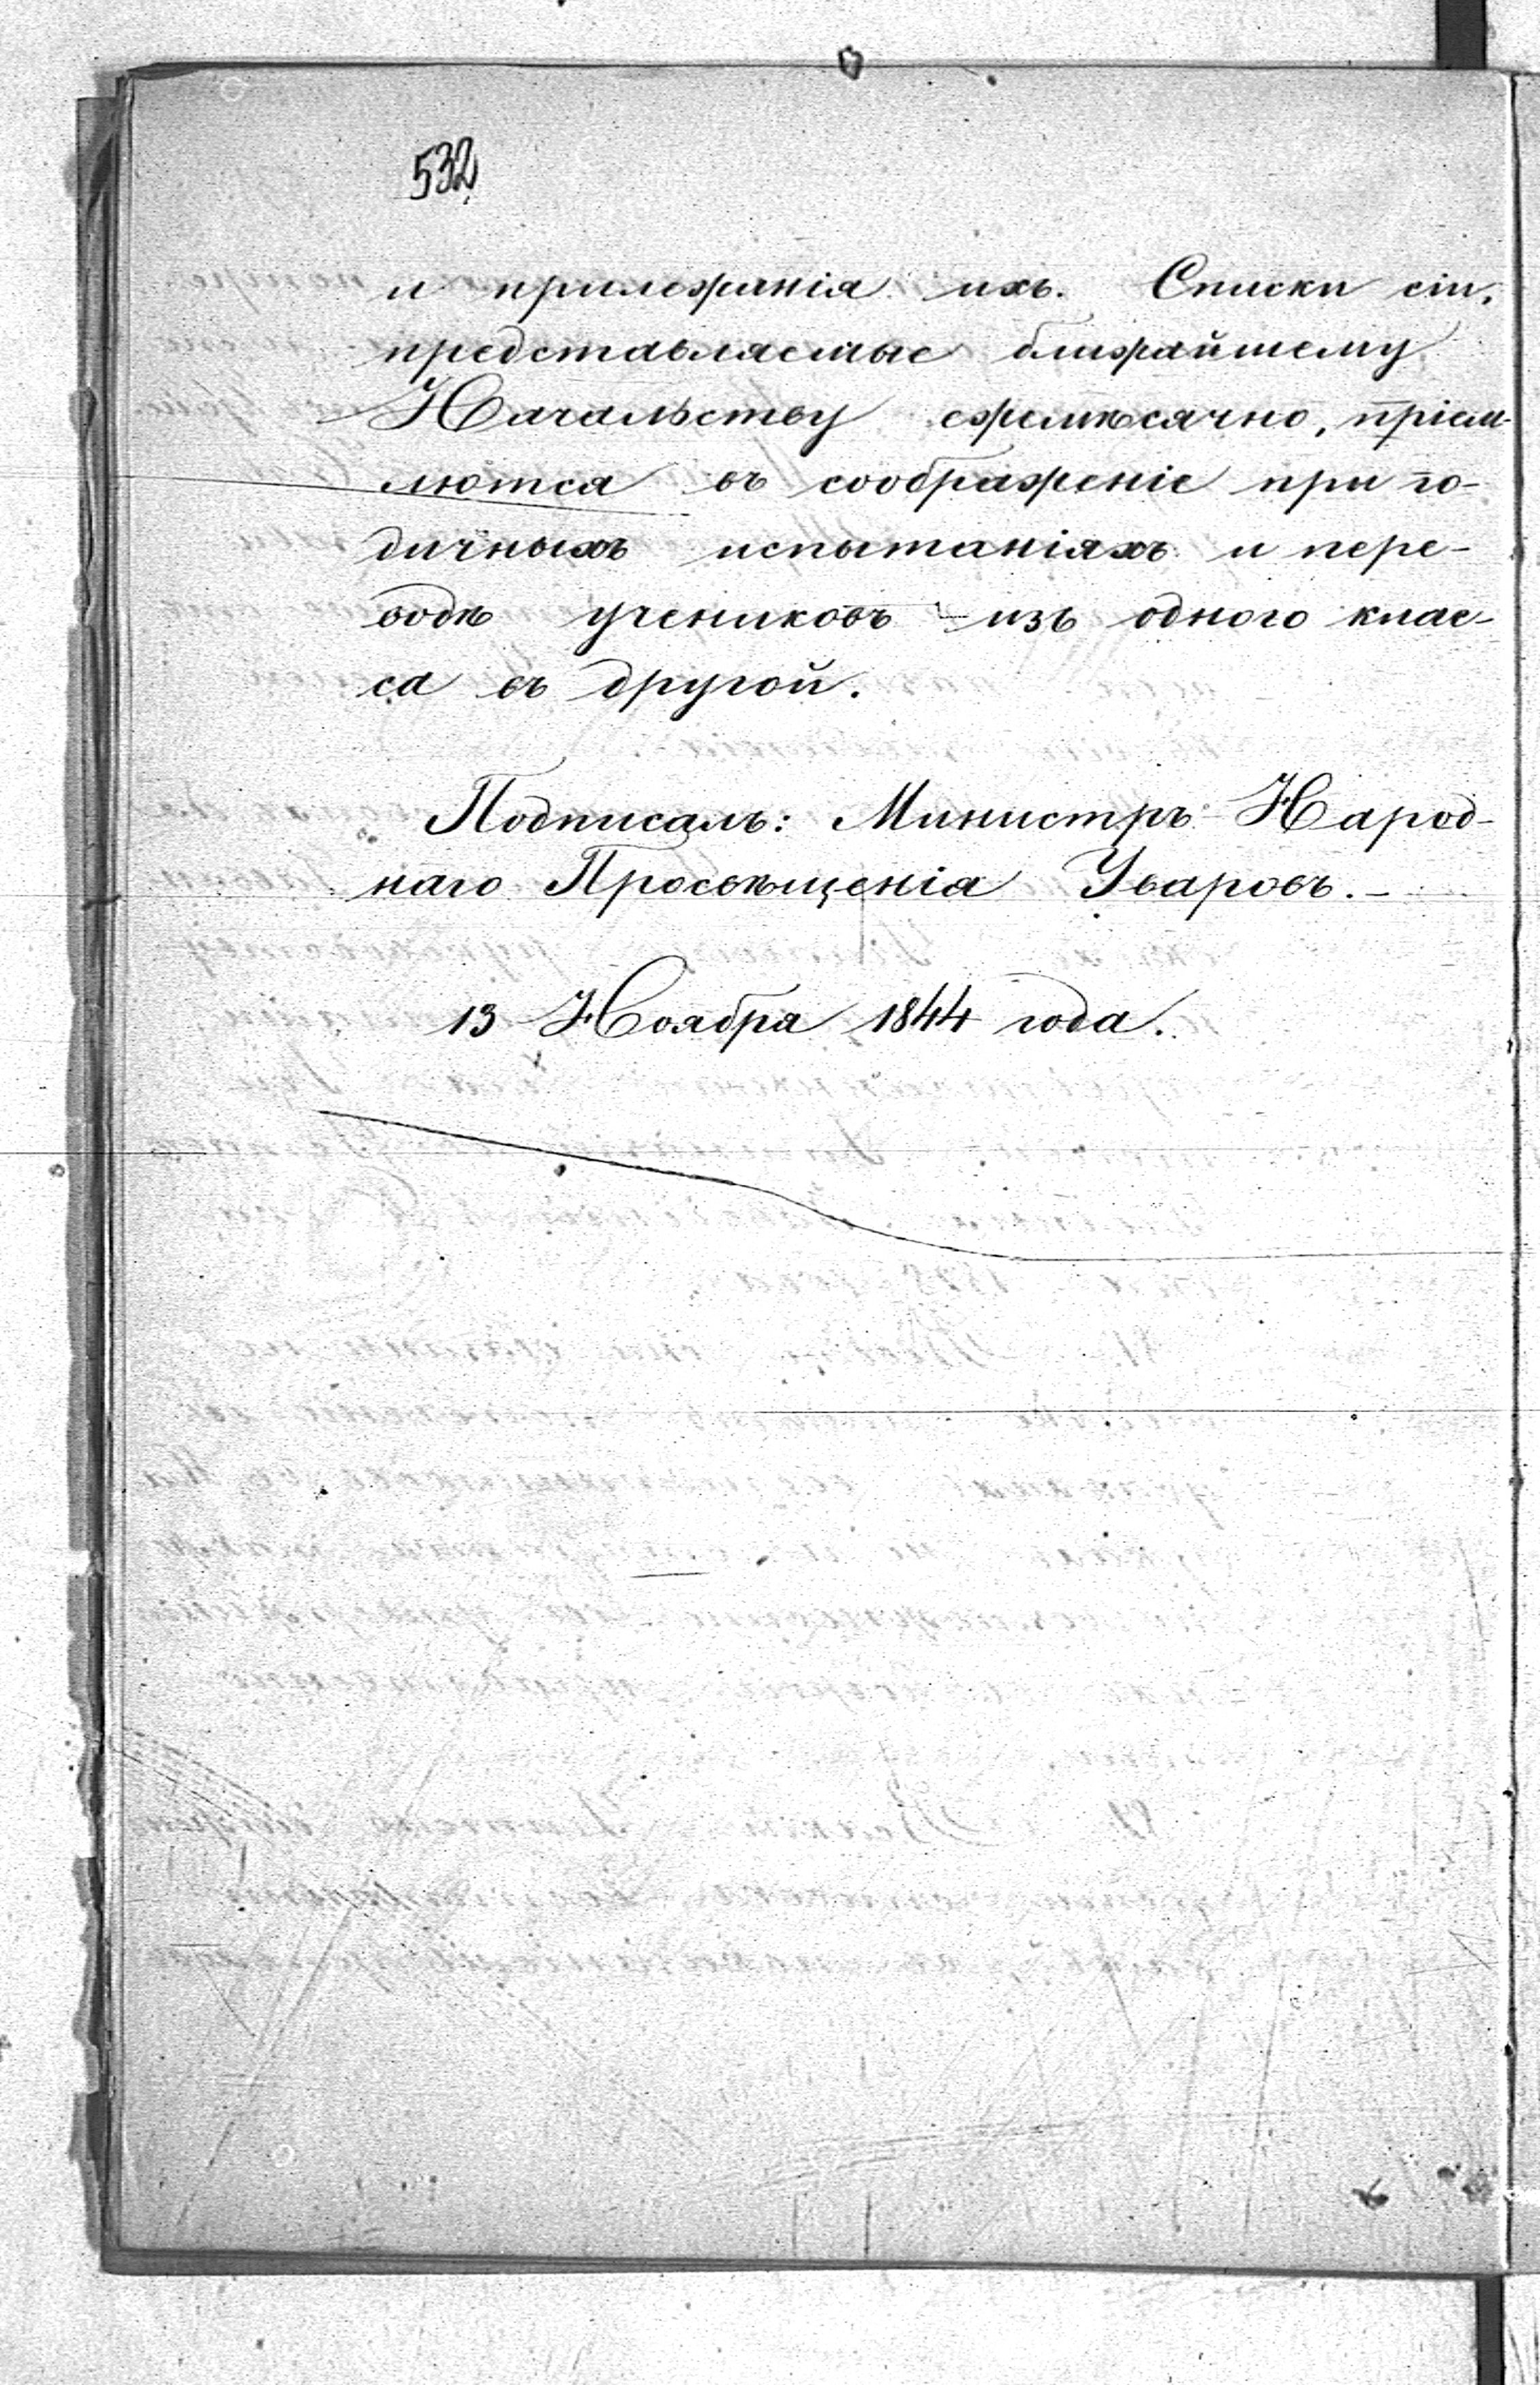 532
и прилежанія ихъ. Списки сіи,
представляемые ближайшему
Начальству ежемѣсячно, пріем-
лются въ соображеніе при го-
дичныхъ испытаніяхъ и пере-
водѣ учениковъ изъ одного клас-
са въ другой.
Подписалъ: Министръ Народ-
наго Просвѣщенія Уваровъ.
13 Ноября 1844 года.